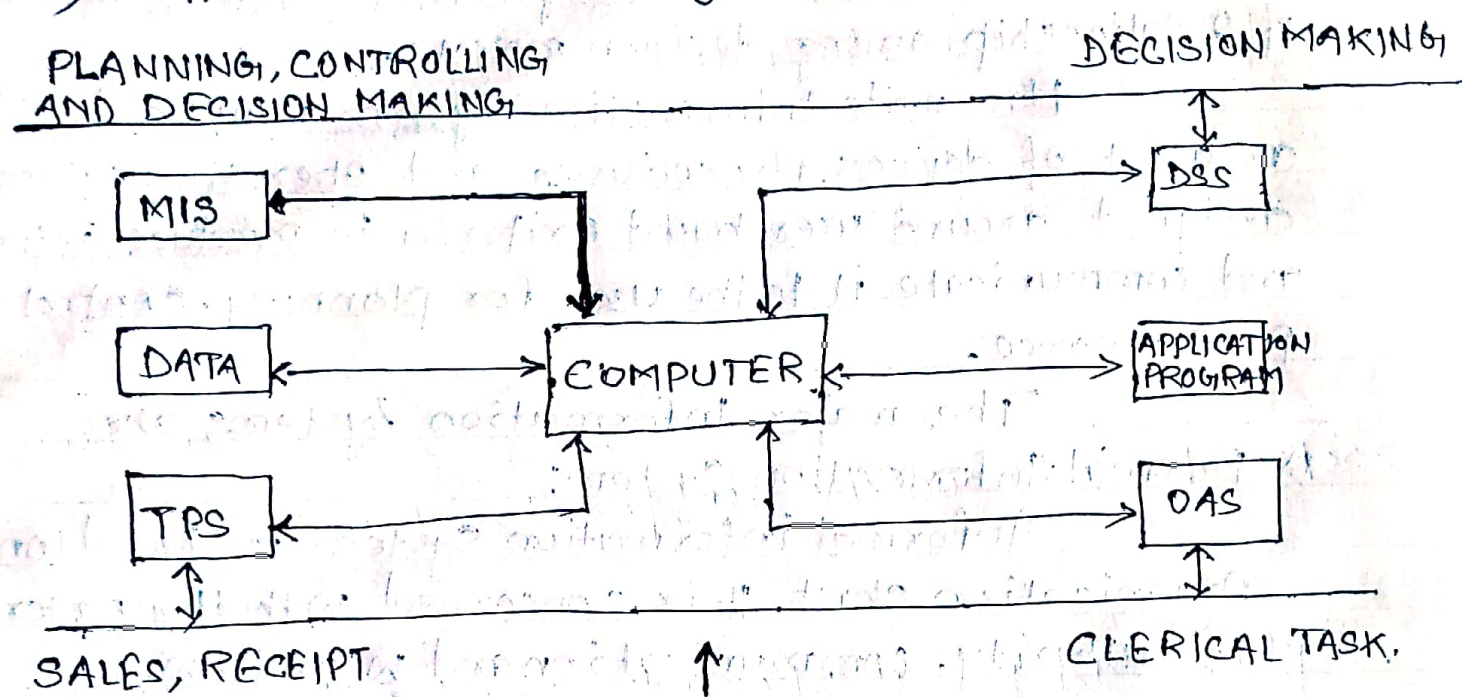 PLANNING, CONTROLLING
AND DECISION MAKING
DECISION MAKING
MIS
DSS
DATA
COMPUTER
APPLICATION
PROGRAM
TPS
OAS
SALES, RECEIPT
CLERICAL TASK.